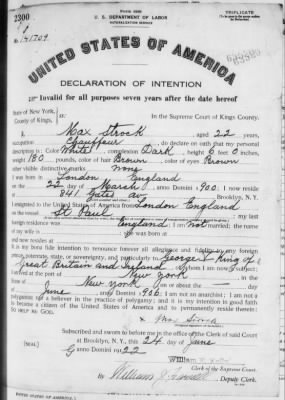 2300
Form 2203
U. S. DEPARTMENT OF LABOR
NATURALIZATION SERVICE
TRIPLICATE
No. 141709
UNITED STATES OF AMERICA
DECLARATION OF INTENTION
Invalid for all purposes seven years after the date hereof
State of New York,
County of Kings,
In the Supreme Court of Kings County.
I, Max Strook, aged 22 years,
occupation Chauffeur, do declare on oath that my personal
description is: Color White, complexion Dark, height 6 feet 0 inches,
weight 180 pounds, color of hair Brown, color of eyes Brown
other visible distinctive marks none
I was born in London England
on the 22 day of March, anno Domini 1900; I now reside
at 941 Gates av Brooklyn, N. Y.
I emigrated to the United States of America from London England
on the vessel St Paul; my last
foreign residence was England; I am not married; the name
of my wife is she was born at
and now resides at
It is my bona fide intention to renounce forever all allegiance and fidelity to any foreign
prince, potentate, state, or sovereignty, and particularly to George V King of
Great Britain and Ireland of whom I am now a subject;
I arrived at the port of New York, in the
State of New York, on or about the — day
of June, anno Domini 1906; I am not an anarchist; I am not a
polygamist nor a believer in the practice of polygamy; and it is my intention in good faith
to become a citizen of the United States of America and to permanently reside therein:
SO HELP ME GOD.
Subscribed and sworn to before me in the office of the Clerk of said Court
[SEAL] at Brooklyn, N. Y., this 24 day of June
anno Domini 1922
William
Clerk of the Supreme Court.
By William J., Deputy Clerk.